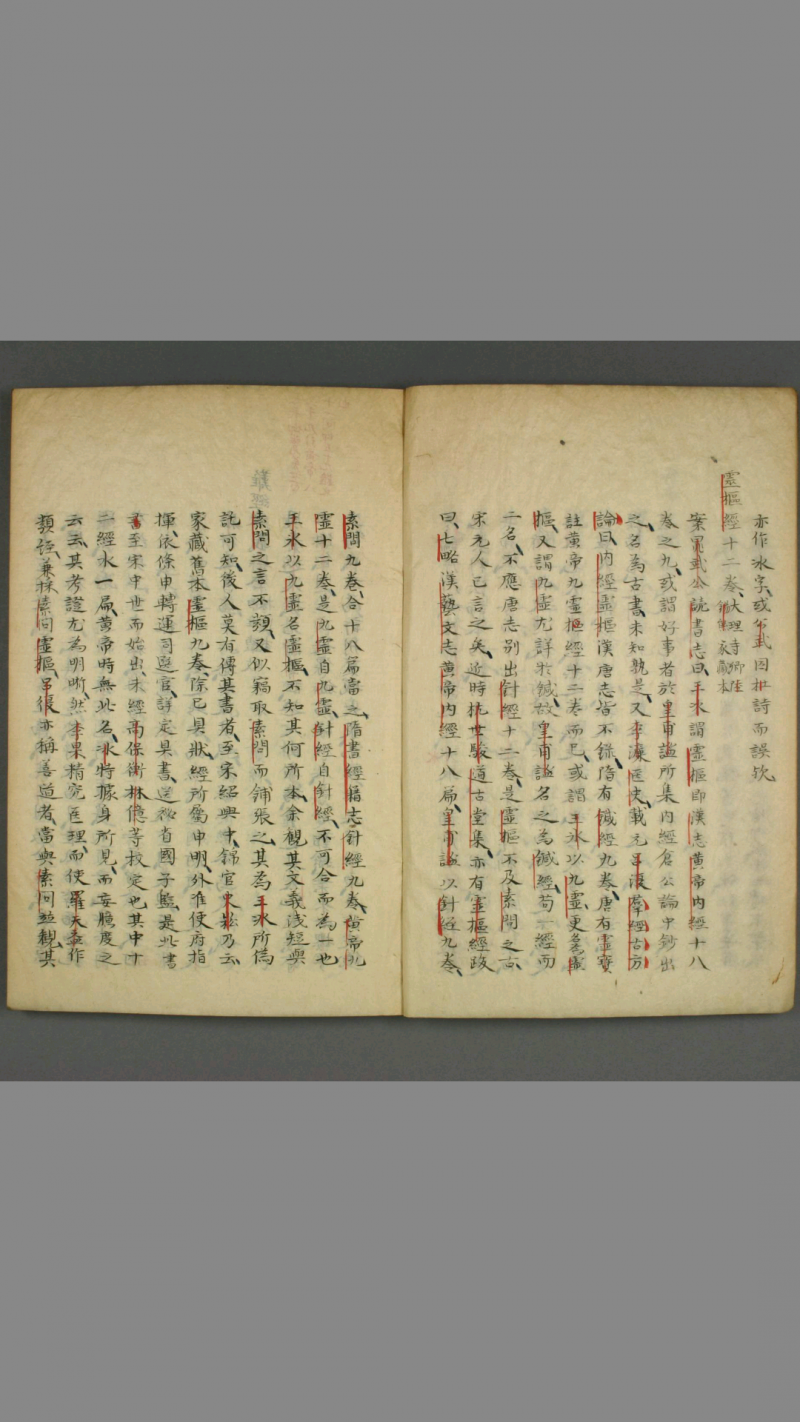 亦作冰字或介武因杜詩而誤欤
靈樞經十二卷大理寺卿陸
家藏本
案晁武公讀書志曰王冰謂靈樞即漢志黄帝内經十八
卷之九或謂好事者於皇甫謐所集内經倉公論中鈔出
之名為古書未知孰是又李濂医史載元吕復羣經古方
論曰内經靈樞漢唐志皆不錄隋有鍼經九卷唐有靈寶
註黄帝九靈樞經十二卷而已或謂王冰以九靈更為靈
樞又謂九虛尤詳於鍼故皇甫謐名之為鍼經苟一經而
二名不應唐志別出針經十二卷是靈樞不及素問之古
宋元人已言之矣近時杭世駿道古堂集亦有靈樞經跋
曰七略漢藝文志黄帝内經十八扁皇甫謐以針經九卷
素問九卷合十八篇當之隋書經籍志針經九卷黄帝九
靈十二卷是九靈自九靈針經自針經不可合而為一也
王冰以九靈名靈樞不知其何所本余觀其文義淺短與
素問之言不類又似竊取素問而鋪張之其為王冰所偽
託可知後人莫有傳其書者至宋紹興中錦官史崧乃云
家藏舊本靈樞九卷除已具狀經所属申明外准使府指
揮依條申轉運司選官詳定具書送秘省國子監是此書
書至宋中世而始出未經高保衡林億等校定也其中十
二經水一扁黄帝時無此名冰特據身所見而妄臆度之
云云其考證尤為明晰然李杲精究医理而使羅天益作
類經兼採素問靈樞吕復亦稱善道者當與素問並觀其
難經